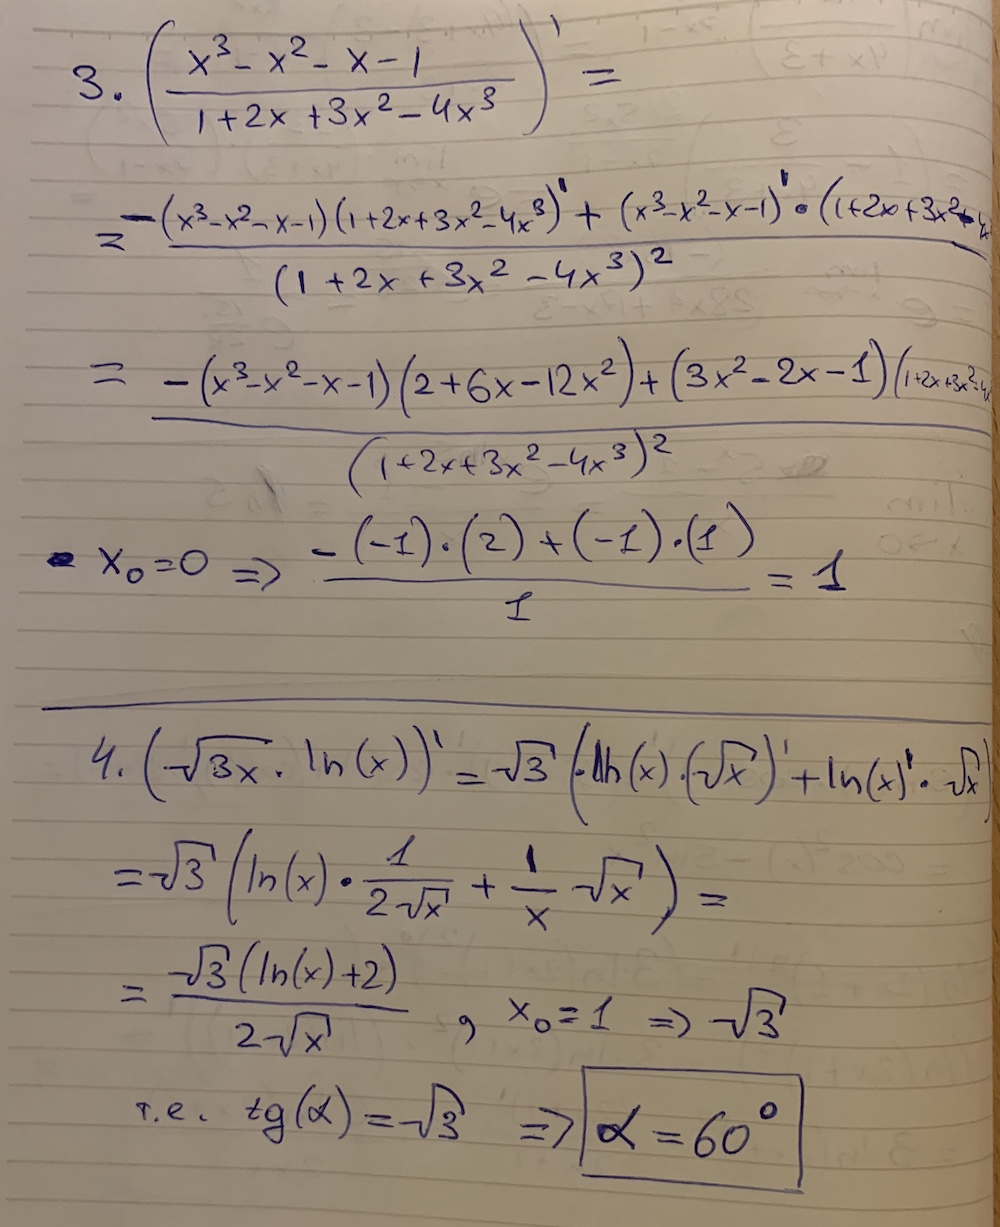 3. ( (x³ - x² - x - 1) / (1 + 2x + 3x² - 4x³) )' =
= (-(x³-x²-x-1)(1+2x+3x²-4x³)' + (x³-x²-x-1)'·(1+2x+3x²-4x / (1+2x+3x²-4x³)²
= (-(x³-x²-x-1)(2+6x-12x²)+(3x²-2x-1)(1+2x+3x²-4x / (1+2x+3x²-4x³)²
- x₀=0 => (-(-1)·(2)+(-1)·(1)) / 1 = 1
4. (√3x · ln(x))' = √3 (ln(x)·(√x)' + ln(x)'·√x)
= √3 (ln(x)· 1/(2√x) + 1/x √x) =
= √3(ln(x)+2) / (2√x) , x₀=1 => √3
т.е. tg(α)=√3 => α=60°